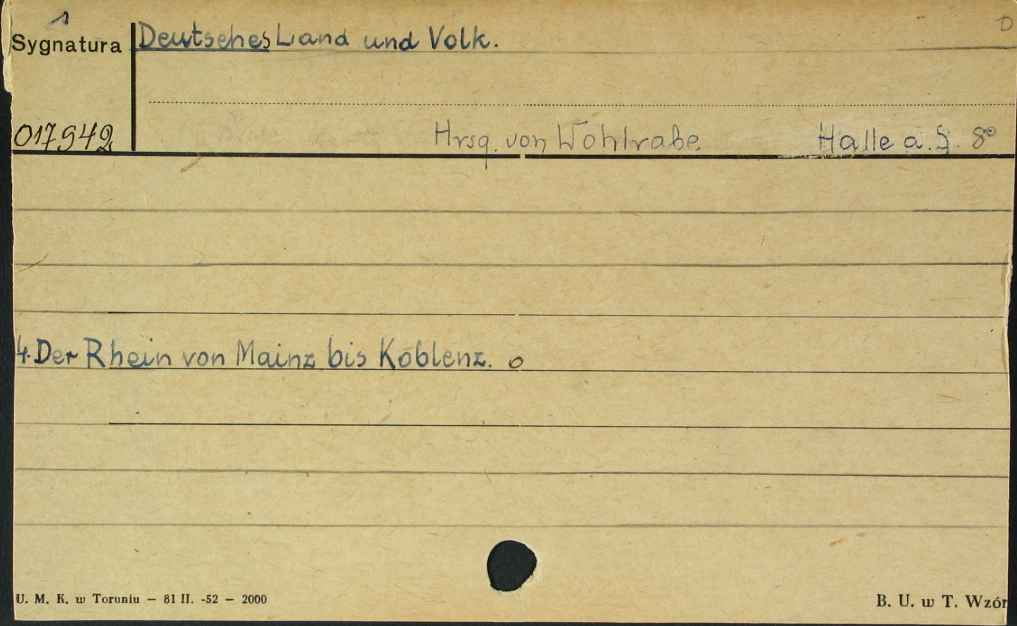 1 D
Sygnatura Deutsches Land und Volk.
017942 Hrsg. von Wohlrabe. Halle a. S. 8°
4. Der Rhein von Mainz bis Koblenz. o
U. M. K. w Toruniu — 81 II. -52 — 2000 B. U. w T. Wzór